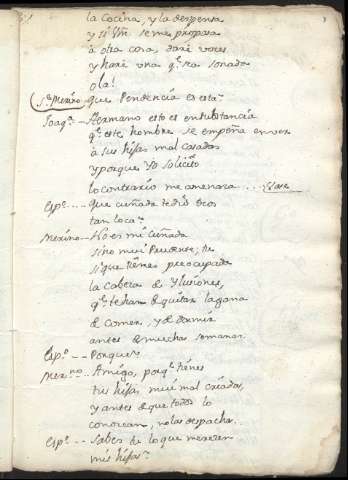 la Cocina, y la despensa
y si Vm se me propasa
à otra cosa, daré voces
y haré una q.e sea sonada
ola!
S.r Merino que Pendencia es esta?
Joaq.a Hermano esto es en substancia
q.e este hombre se empeña en ver
à sus hijas mal casadas
y porque Yo solicito
lo contrario me amenaza ... Vase
Esp.o Que cuñada te dió Dios
tan loca?
Merino No es mi Cuñada
sino mui Prudente; tu
si que tienes preocupada
la cabeza de Ylusiones,
q.e te han de quitar la gana
de comer, y de dormir
antes de muchas semanas.
Esp.o Porque?
Merino Amigo, porq.e tienes
tus hijas mui mal criadas,
y antes de que todos lo
conozcan, no las despachas.
Esp.o Sabes tu lo que merecen
mis hijas?